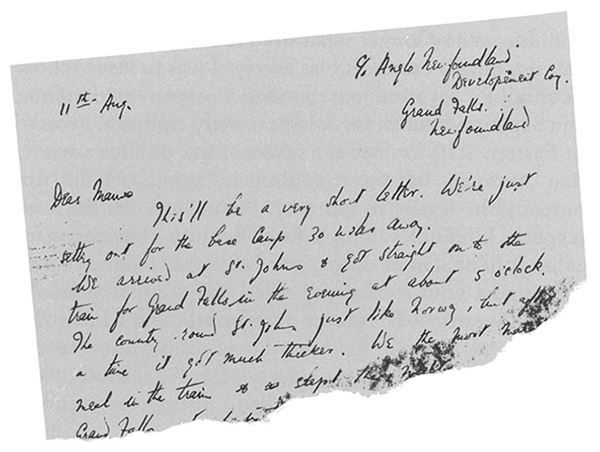 c/o Anglo Newfoundland
Developement Coy.
11th Aug.
Grand Falls.
Newfoundland
Dear Mama
This'll be a very short letter. We're just
setting out for the base Camp 30 miles away.
We arrived at St. Johns & got straight on to the
train for Grand Falls in the evening at about 5 o'clock.
The country round St. Johns just like Norway, but after
a time it got much thicker. We the most
meal in the train & so slept the
Grand Falls